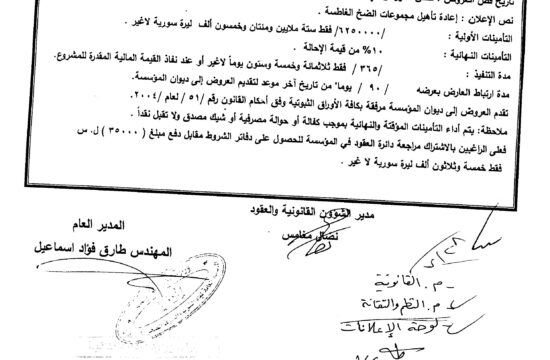 نص الإعلان : إعادة تأهيل مجموعات الضخ الغاطسة .
التأمينات الأولية : /٦٢٥٠٠٠٠/ فقط ستة ملايين ومئتان وخمسون ألف ليرة سورية لاغير .
التأمينات النهائية : ١٠% من قيمة الإحالة .
مدة التنفيذ : /٣٦٥/ فقط ثلاثمائة وخمسة وستون يوماً لاغير أو عند نفاذ القيمة المالية المقدرة للمشروع.
مدة ارتباط العارض بعرضه / ٩٠ / يوما" من تاريخ آخر موعد لتقديم العروض إلى ديوان المؤسسة.
تقدم العروض إلى ديوان المؤسسة مرفقة بكافة الأوراق الثبوتية وفق أحكام القانون رقم /٥١/ لعام /٢٠٠٤.
ملاحظة: يتم أداء التأمينات المؤقتة والنهائية بموجب كفالة أو حوالة مصرفية أو شيك مصدق ولا تقبل نقداً .
فعلى الراغبين بالاشتراك مراجعة دائرة العقود في المؤسسة للحصول على دفاتر الشروط مقابل دفع مبلغ ( ٣٥٠٠٠ ) ل. س
فقط خمسة وثلاثون ألف ليرة سورية لا غير .
مدير الشؤون القانونية والعقود
نضال مغامس
المدير العام
المهندس طارق فؤاد اسماعيل
- م. القانونية
م. النظم والتقانة
لوحة الإعلانات